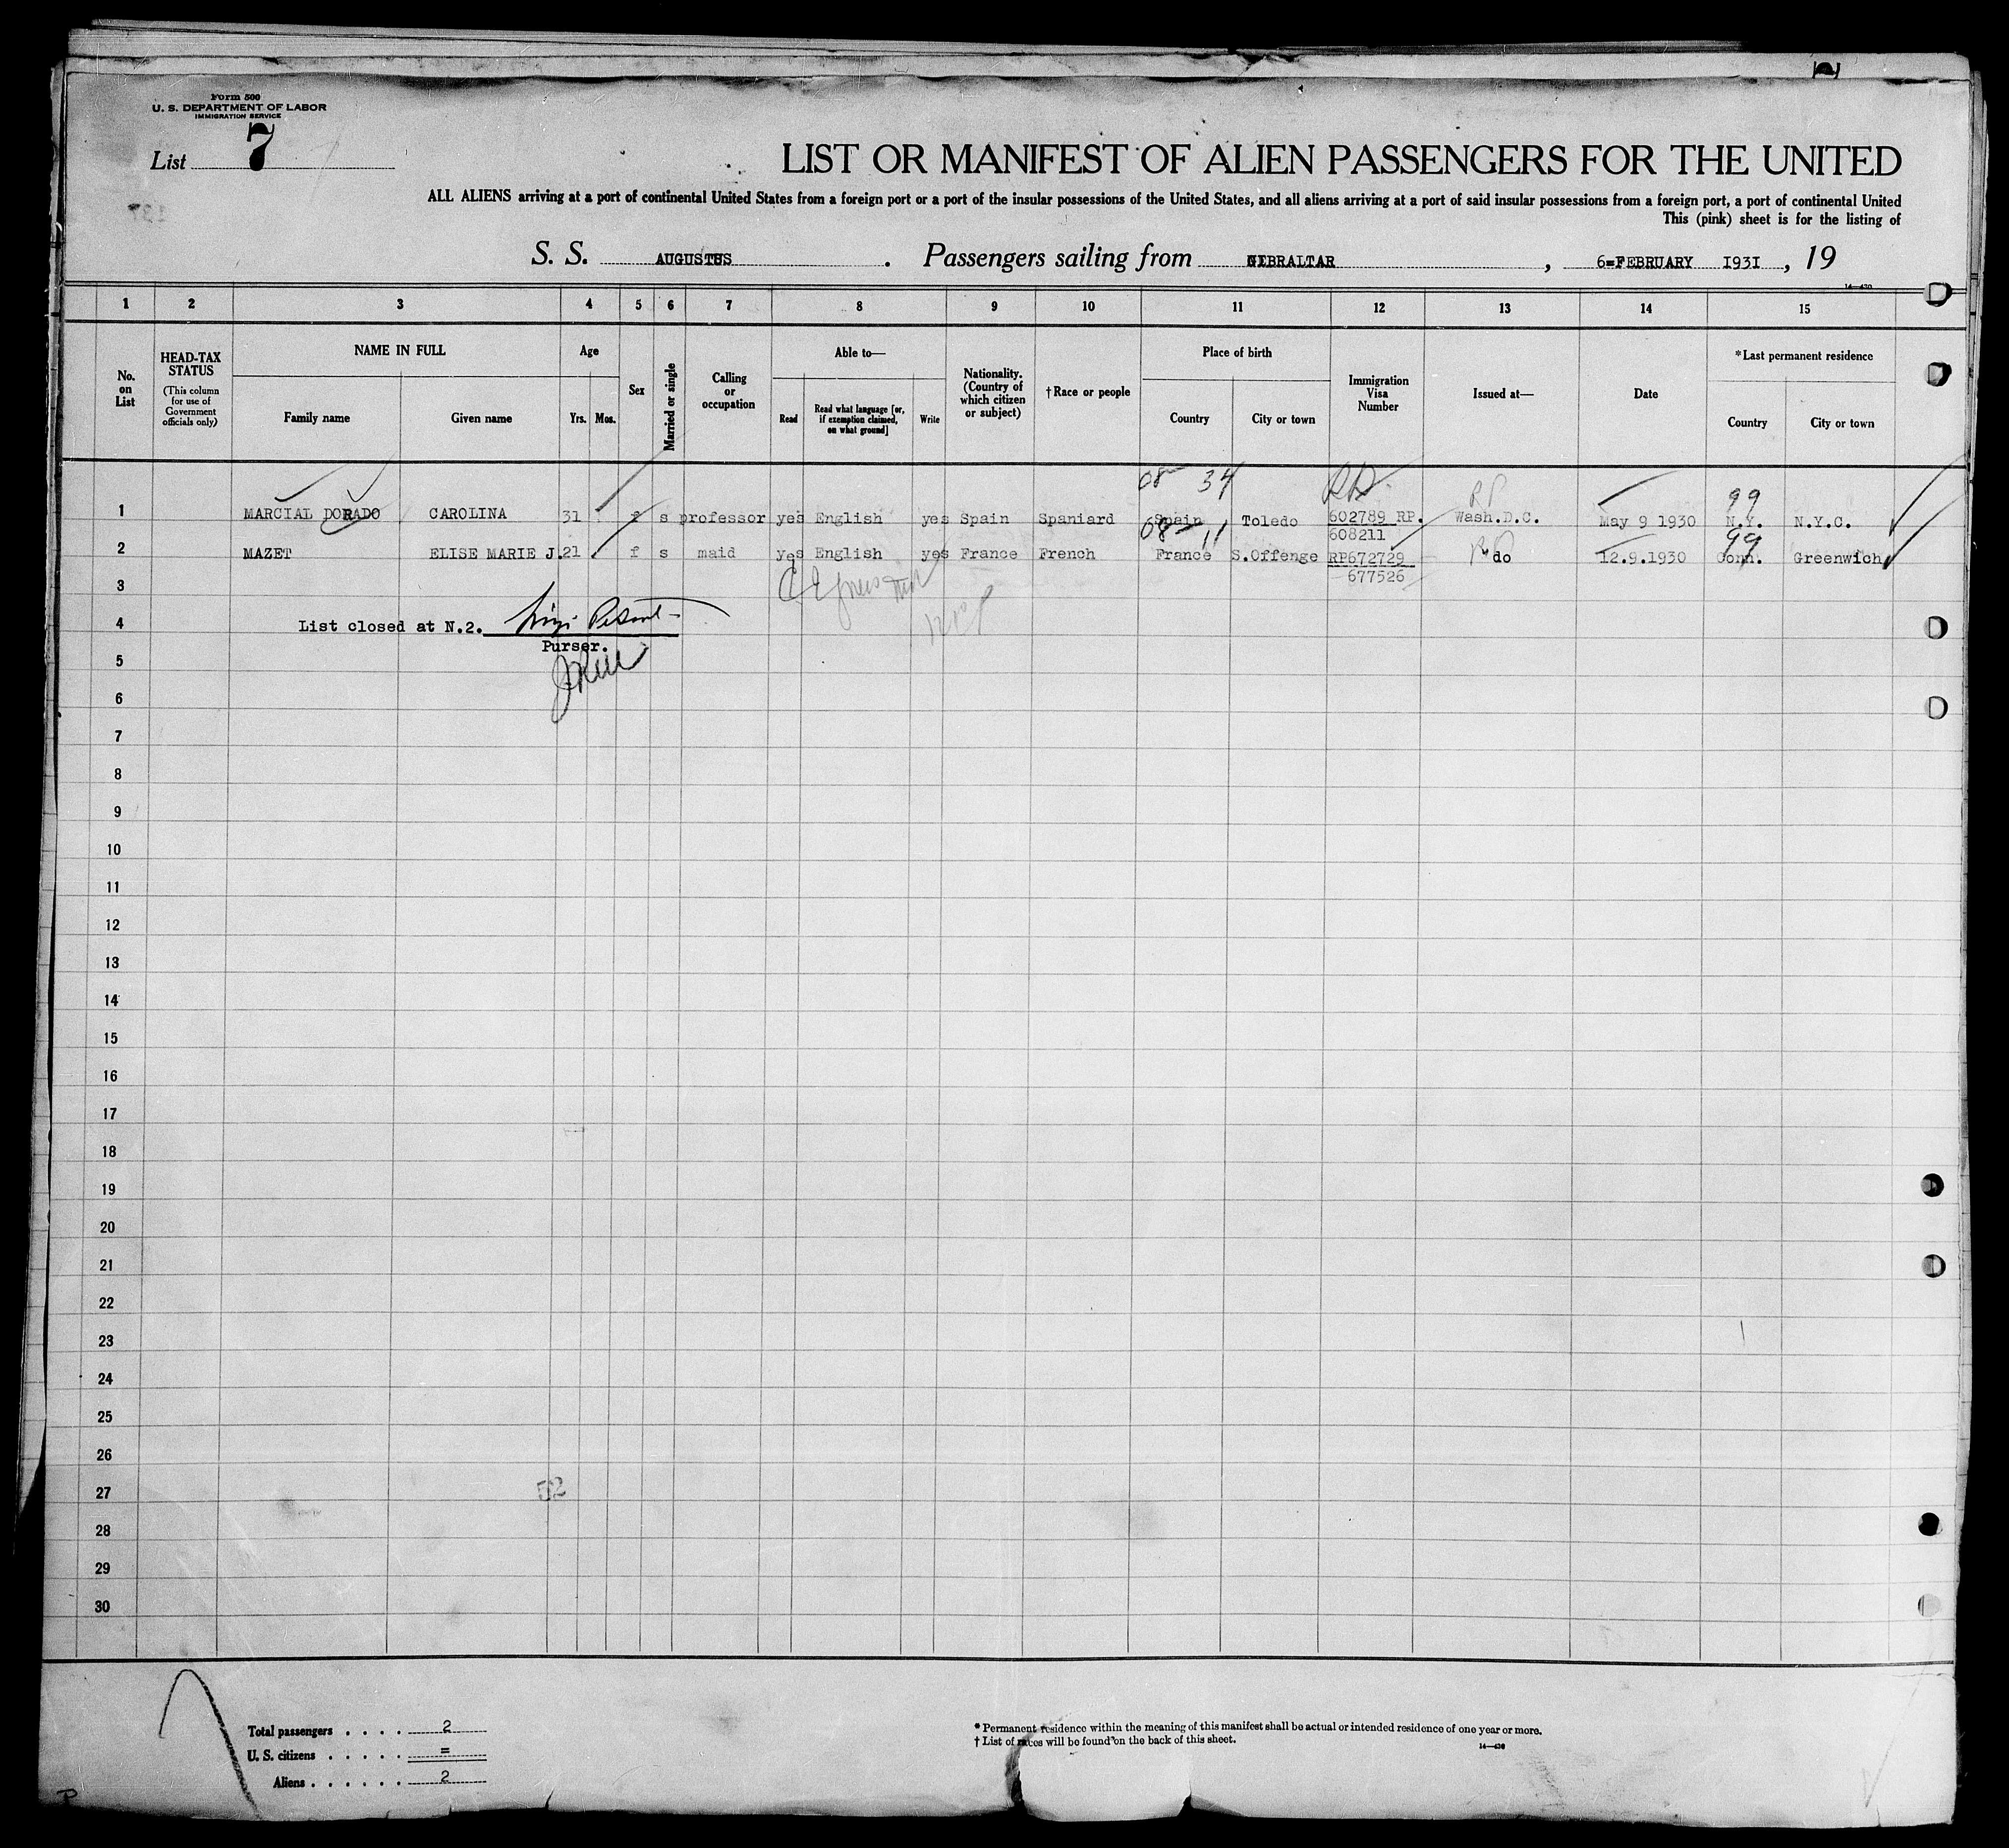 Form 500
U. S. DEPARTMENT OF LABOR
IMMIGRATION SERVICE
List 7
LIST OR MANIFEST OF ALIEN PASSENGERS FOR THE UNITED
ALL ALIENS arriving at a port of continental United States from a foreign port or a port of the insular possessions of the United States, and all aliens arriving at a port of said insular possessions from a foreign port, a port of continental United
This (pink) sheet is for the listing of
S. S. AUGUSTUS . Passengers sailing from GIBRALTAR , 6=FEBRUARY 1931 , 19
14—430
1 2 3 4 5 6 7 8 9 10 11 12 13 14 15
No. on List
HEAD-TAX STATUS
(This column for use of Government officials only)
NAME IN FULL
Family name
Given name
Age
Yrs. Mos.
Sex
Married or single
Calling or occupation
Able to—
Read
Read what language [or, if exemption claimed, on what ground]
Write
Nationality. (Country of which citizen or subject)
†Race or people
Place of birth
Country
City or town
Immigration Visa Number
Issued at—
Date
*Last permanent residence
Country
City or town
08 34 99
1 MARCIAL DORADO CAROLINA 31 f s professor yes English yes Spain Spaniard Spain Toledo 602789 RP. Wash.D.C. May 9 1930 N.Y. N.Y.C.
608211
08 11 99
2 MAZET ELISE MARIE J. 21 f s maid yes English yes France French France S.Offenge RP672729 "do 12.9.1930 Conn. Greenwich
677526
3
4 List closed at N.2.
Purser.
5
6
7
8
9
10
11
12
13
14
15
16
17
18
19
20
21
22
23
24
25
26
27
52
28
29
30
Total passengers . . . . 2
U. S. citizens . . . . . =
Aliens . . . . . . 2
* Permanent residence within the meaning of this manifest shall be actual or intended residence of one year or more.
† List of races will be found on the back of this sheet.
14—430